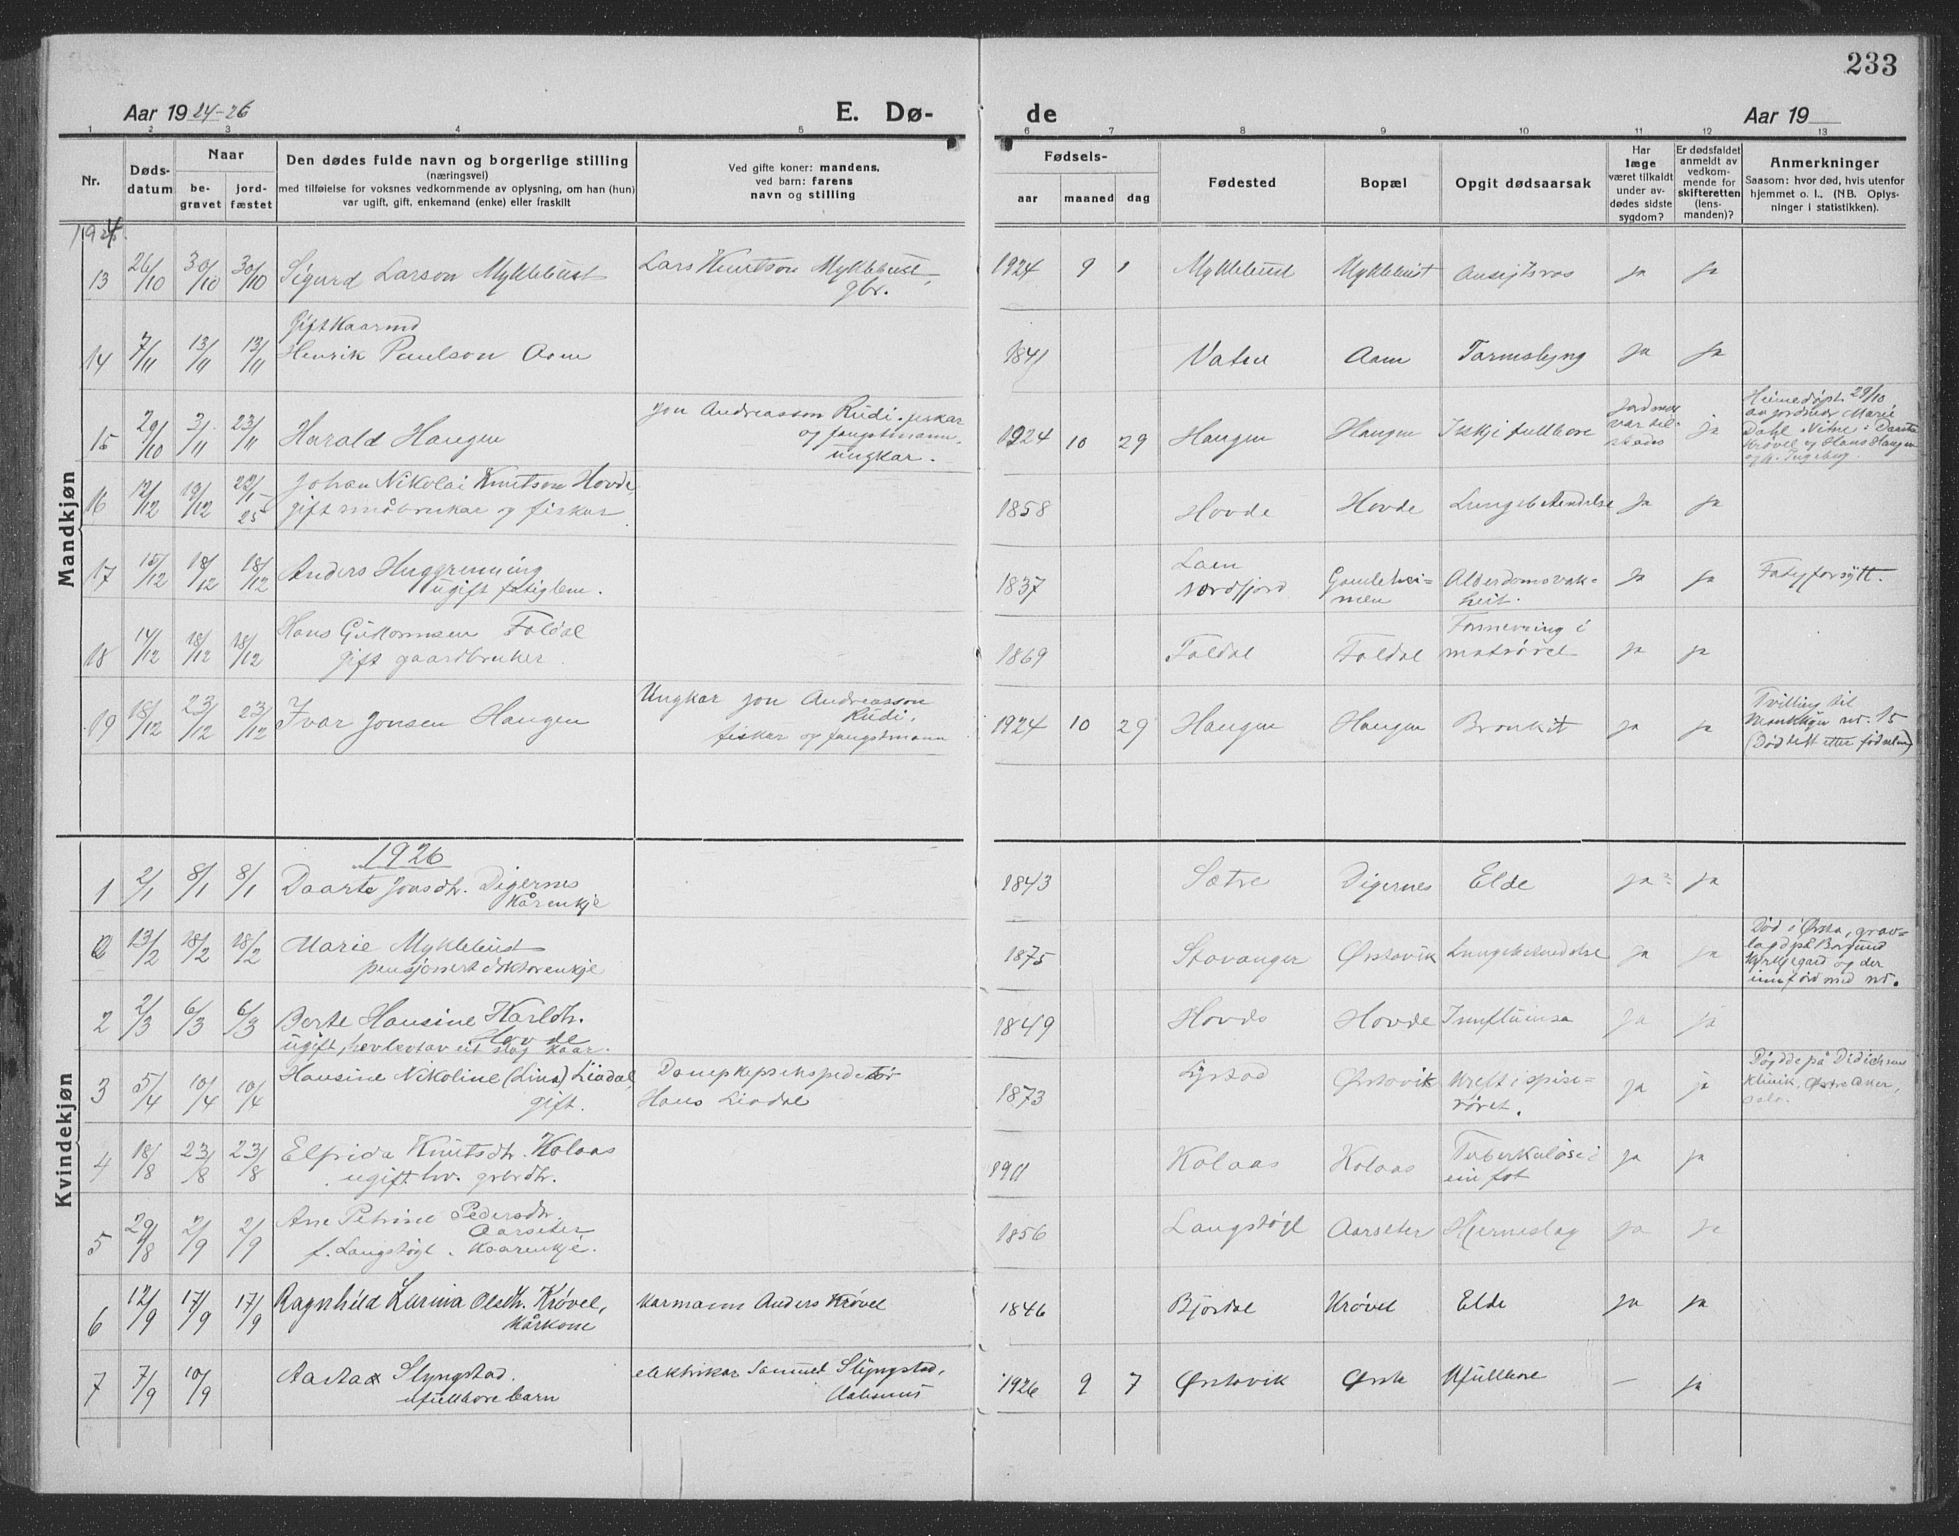 233
Aar 1924-26
E. Dø-
de
Aar 19
1 2 3 4 5 6 7 8 9 10 11 12 13
Nr.
Døds-
datum
Naar
be-
gravet
jord-
fæstet
Den dødes fulde navn og borgerlige stilling
(næringsvei)
med tilføielse for voksnes vedkommende av oplysning, om han (hun)
var ugift, gift, enkemand (enke) eller fraskilt
Ved gifte koner: mandens,
ved barn: farens
navn og stilling
Fødsels-
aar maaned dag
Fødested
Bopæl
Opgit dødsaarsak
Har
læge
været tilkaldt
under av-
dødes sidste
sygdom?
Er dødsfaldet
anmeldt av
vedkom-
mende for
skifteretten
(lens-
manden)?
Anmerkninger
Saasom: hvor død, hvis utenfor
hjemmet o. l., (NB. Oplys-
ninger i statistikken).
Mandkjøn
1924.
13 26/10 30/10 30/10 Sigurd Larson Myklebust
Lars Knutson Myklebust,
gbr.
1924 9 1 Myklebust Myklebust Ansigtsros ja ja
14 7/11 13/11 13/11 Gift Kaarmd
Henrik Paulson Aam
1841 Vatne Aam Tarmslyng ja ja
15 29/10 3/11 23/11 Harald Haugen
Jon Andreasson Rudi. fiskar
og fangstmann.
ungkar.
1924 10 29 Haugen Haugen Ikkje fullbore
Jordmor
var til-
stades
ja
Heimedøpt 29/10
av jordmor Marie
Dahl. Vitne: Daarte
Krøvel og Hans Haugen
og k. Ingeborg.
16 12/12 19/12 22/1-25 Johan Nikolai Knutson Hovde,
gift småbrukar og fiskar
1858 Hovde Hovde Lungebetendelse ja ja
17 15/12 18/12 18/12 Anders Huggrenning
ugift fatiglem.
1837 Loen
Nordfjord
Gamlehei-
men
Alderdomsvak-
heit.
ja ja Fatigforsytt.
18 14/12 18/12 18/12 Hans Guttormsen Foldal
gift gaardbruker.
1869 Foldal Foldal
Forsnevring i
matrøret
ja ja
19 18/12 23/12 23/12 Ivar Jonsen Haugen
Ungkar Jon Andreasson
Rudi,
fiskar og fangstmann
1924 10 29 Haugen Haugen Bronkit ja ja
Tvilling til
Mannkjøn nr. 15
(Død tett etter fødselen)
Kvindekjøn
1926
1 2/1 8/1 8/1 Daarte Jonsdtr. Digernes
Kårenkje
1843 Sætre Digernes Elde ja ja
0 13/2 18/2 18/2 Marie Myklebust
pensjonert doktorenkje
1875 Stavanger Ørstavik Lungebetendelse ja ja
Død i Ørsta, grav-
lagd på Borgund
kyrkjegard og der
innførd med nr.
2 2/3 6/3 6/3 Berte Hansine Karldtr.
Hovde
ugift, hevdestav eit slag Kaar.
1849 Hovde Hovde Innfluensa ja ja
3 5/4 10/4 10/4 Hansine Nikoline (Lina) Liadal,
gift.
Dampskipsekspeditør
Hans Liadal
1873 Lystad Ørstavik
Kreft i spise-
røret.
ja ja
Døydde på Didichsens
klinik, Østre Aker,
Oslo.
4 18/8 23/8 23/8 Elfrida Knutsdtr. Kolaas
ugift hv. gbrdtr.
1911 Kolaas Kolaas
Tuberkulose i
ein fot
ja ja
5 29/8 2/9 2/9 Ane Petrine Pedersdtr.
Aarseter
f. Langstøyl. Kaarenkje.
1856 Langstøyl Aarseter Hjerneslag ja ja
6 12/9 17/9 17/9 Ragnhild Larina Olsdtr. Krøvel,
Kårkone
Karmann Anders Krøvel
1846 Bjørdal Krøvel Elde ja ja
7 7/9 10/9 Aasta Slyngstad.
ufullbore barn
elektrikar Samuel Slyngstad,
Aalesund
1926 9 7 Ørstavik Ørsta Ufullbore — ja